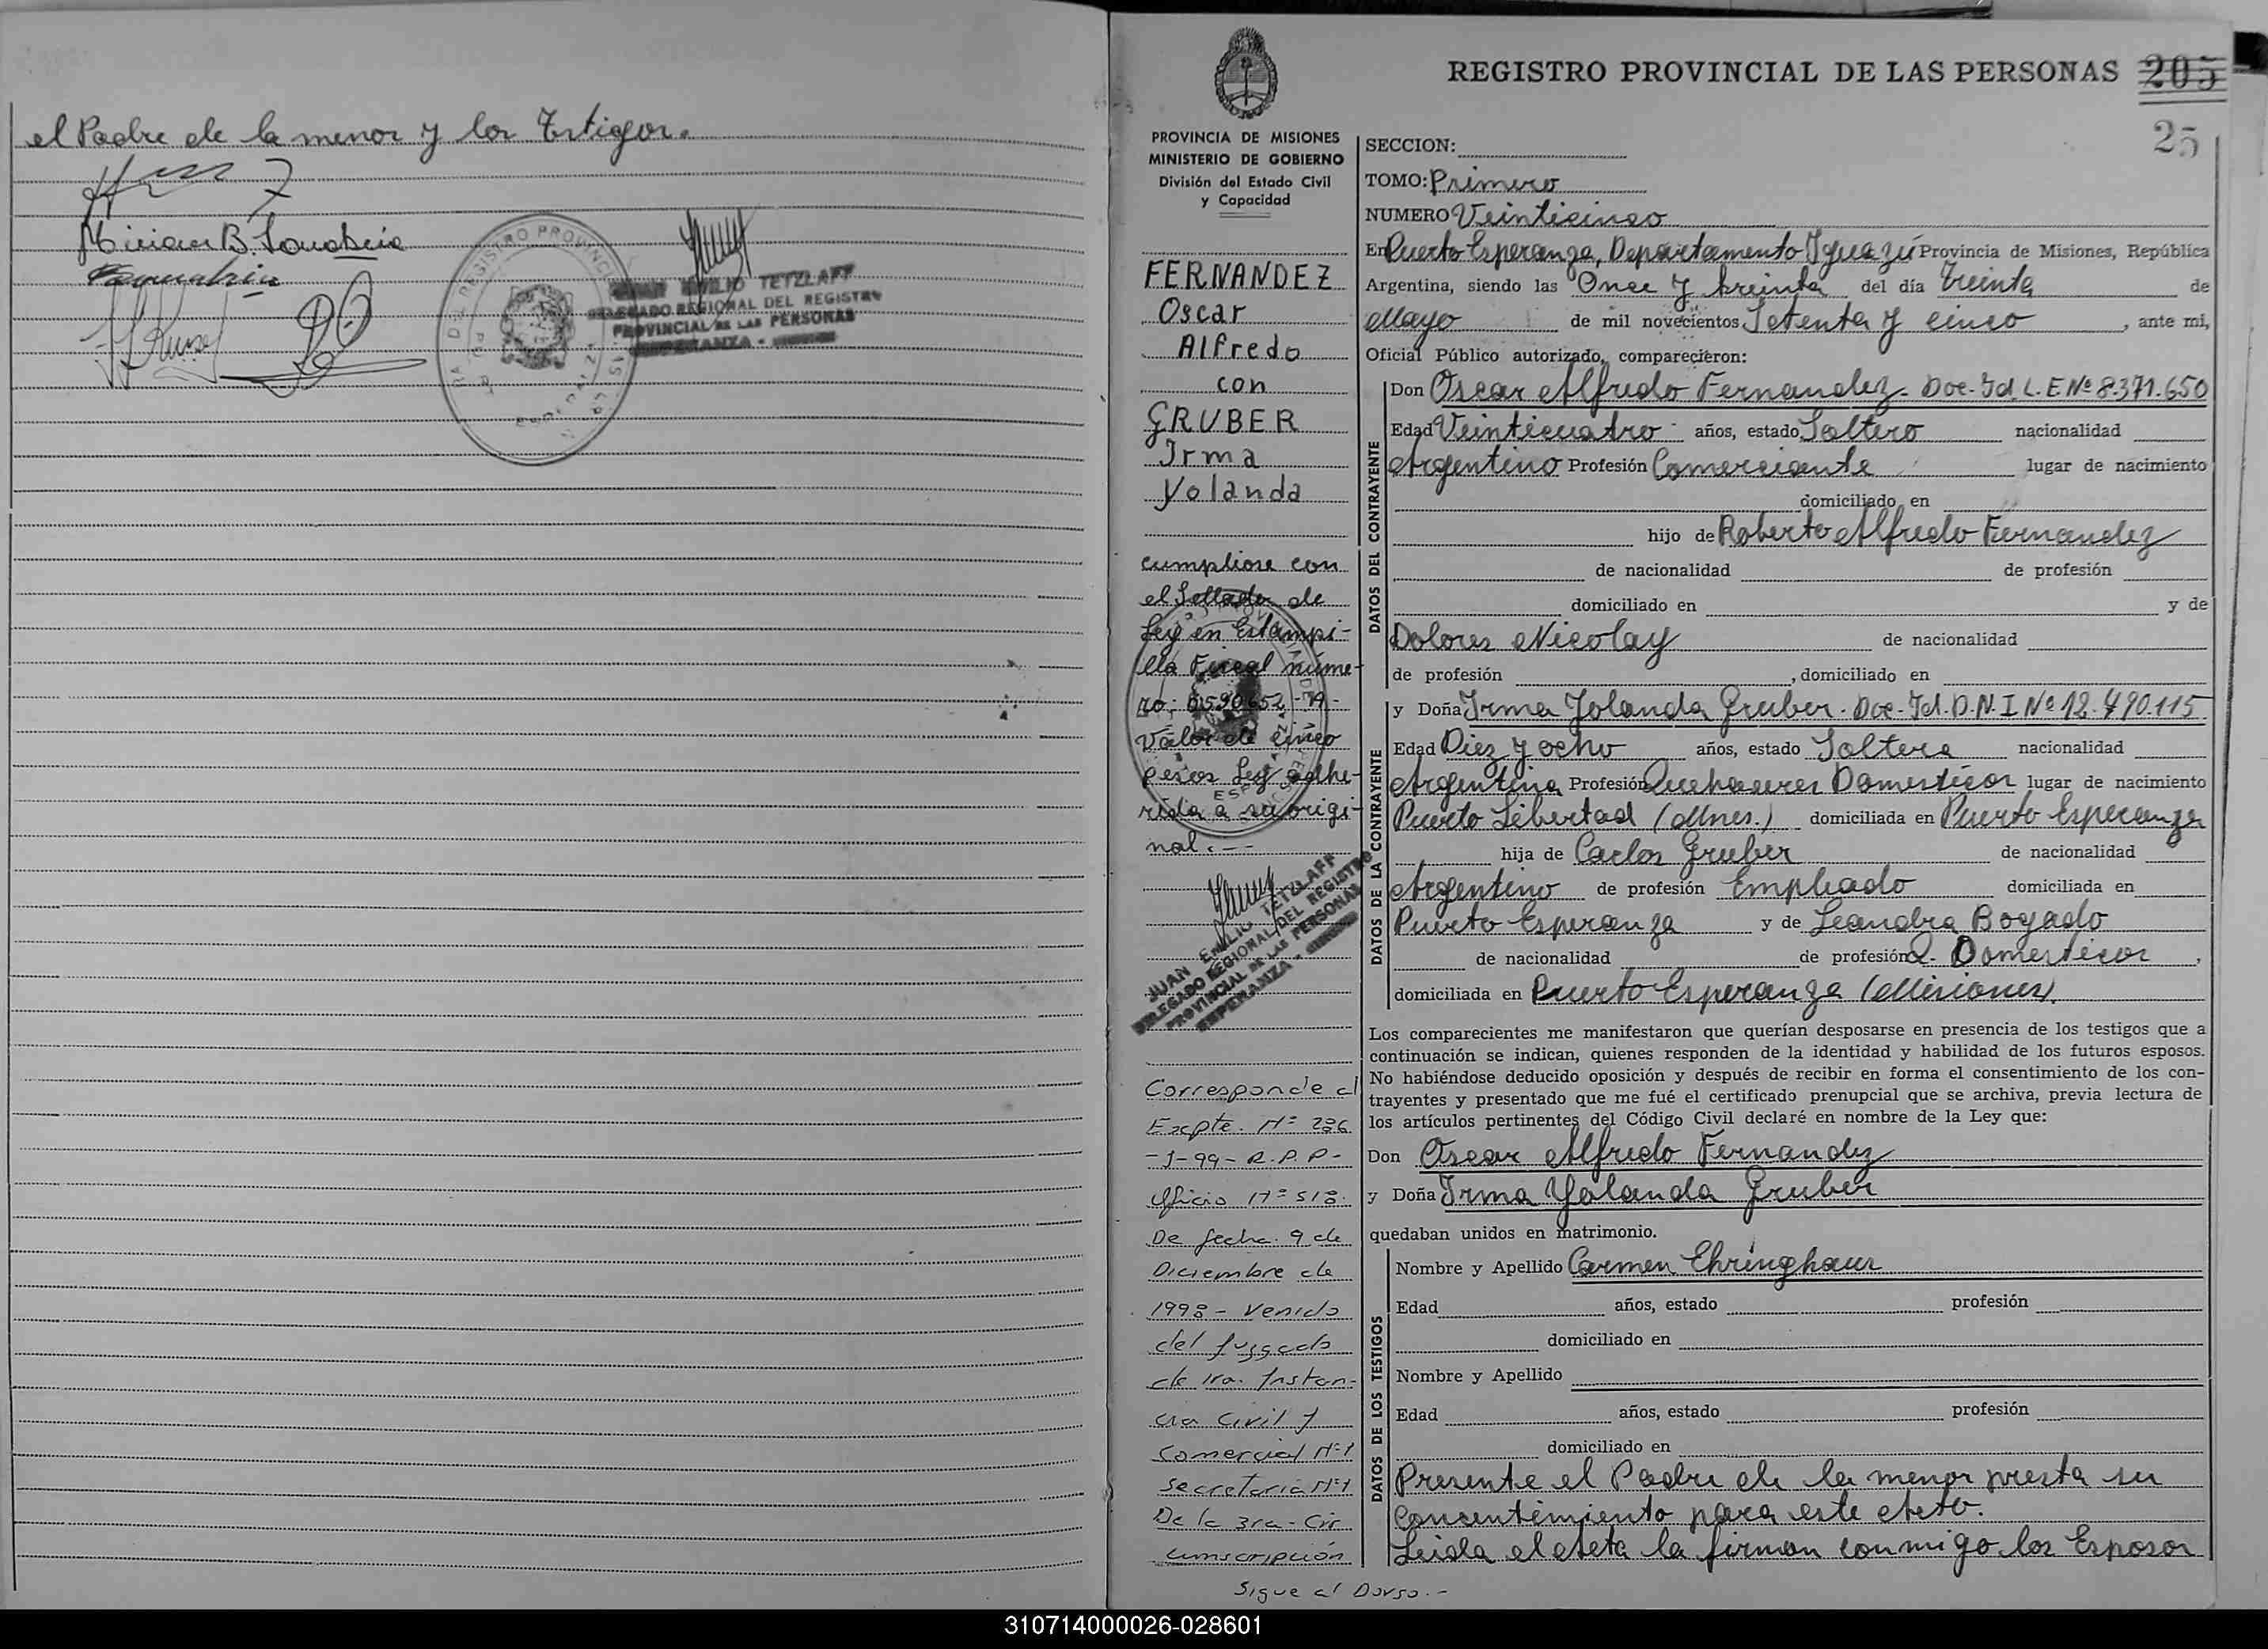 el Padre de la menor y los Testigos.
Mirian B. Sanabria
Sanabria
JUAN EMILIO TETZLAFF
DELEGADO REGIONAL DEL REGISTRO
PROVINCIAL DE LAS PERSONAS
ESPERANZA -
REGISTRO PROVINCIAL DE LAS PERSONAS 205
25
PROVINCIA DE MISIONES
MINISTERIO DE GOBIERNO
División del Estado Civil
y Capacidad
FERNANDEZ
Oscar
Alfredo
con
GRUBER
Irma
Yolanda
cumpliose con
el Sellado de
Ley en Estampi-
lla Fiscal núme-
ro: 6590652 -A-
Valor de cinco
pesos Ley adhe-
rida a su origi-
nal.--
JUAN EMILIO TETZLAFF
DELEGADO REGIONAL DEL REGISTRO
PROVINCIAL DE LAS PERSONAS
ESPERANZA -
Corresponde al
Expte. Nº 236
-J-99- R.P.P-
Oficio Nº 518.
De fecha 9 de
Diciembre de
1998 - Venido
del Juzgado
de 1ra. Instan-
cia Civil y
Comercial Nº1
Secretaria Nº1
De la 3ra- Cir
cunscripción
Sigue al Dorso.-
SECCION:
TOMO: Primero
NUMERO Veinticinco
En Puerto Esperanza, Departamento Iguazú Provincia de Misiones, República
Argentina, siendo las Once y treinta del día treinta de
Mayo de mil novecientos Setenta y cinco, ante mi,
Oficial Público autorizado, comparecieron:
DATOS DEL CONTRAYENTE
Don Oscar Alfredo Fernandez - Doc. Id. L.E Nº 8.371.650
Edad Veinticuatro años, estado Soltero nacionalidad
Argentino Profesión Comerciante lugar de nacimiento
domiciliado en
hijo de Roberto Alfredo Fernandez
de nacionalidad de profesión
domiciliado en y de
Dolores Nicolay de nacionalidad
de profesión , domiciliado en
DATOS DE LA CONTRAYENTE
y Doña Irma Yolanda Gruber. Doc. Id. D.N.I Nº 12.490.115
Edad Diez y ocho años, estado Soltera nacionalidad
Argentina Profesión Quehaceres Domesticos lugar de nacimiento
Puerto Libertad (Mnes.) domiciliada en Puerto Esperanza
hija de Carlos Gruber de nacionalidad
Argentino de profesión Empleado domiciliada en
Puerto Esperanza y de Leandra Bogado
de nacionalidad de profesión Q. Domesticos,
domiciliada en Puerto Esperanza (Misiones).
Los comparecientes me manifestaron que querían desposarse en presencia de los testigos que a
continuación se indican, quienes responden de la identidad y habilidad de los futuros esposos.
No habiéndose deducido oposición y después de recibir en forma el consentimiento de los con-
trayentes y presentado que me fué el certificado prenupcial que se archiva, previa lectura de
los artículos pertinentes del Código Civil declaré en nombre de la Ley que:
Don Oscar Alfredo Fernandez
y Doña Irma Yolanda Gruber
quedaban unidos en matrimonio.
DATOS DE LOS TESTIGOS
Nombre y Apellido Carmen Ehringhaus
Edad años, estado profesión
domiciliado en
Nombre y Apellido
Edad años, estado profesión
domiciliado en
Presente el Padre de la menor presta su
Concentimiento para este acto.
Leida el acta la firman conmigo los Esposos
310714000026-028601